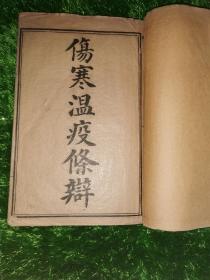 傷寒温疫條辯